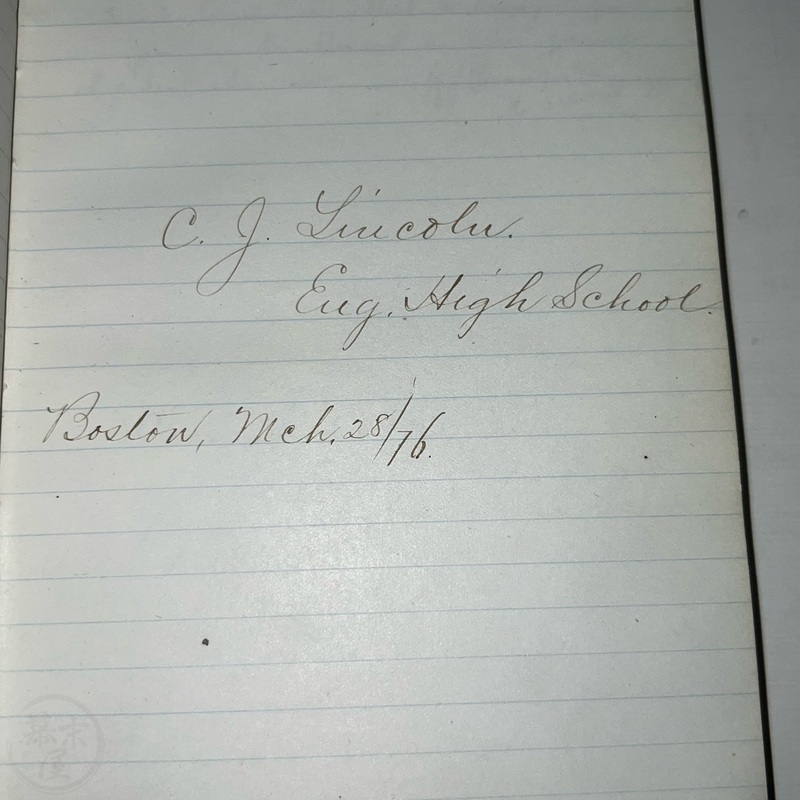 C. J. Lincoln.
Eng. High School.
Boston, Mch. 28/76.
幕末屋